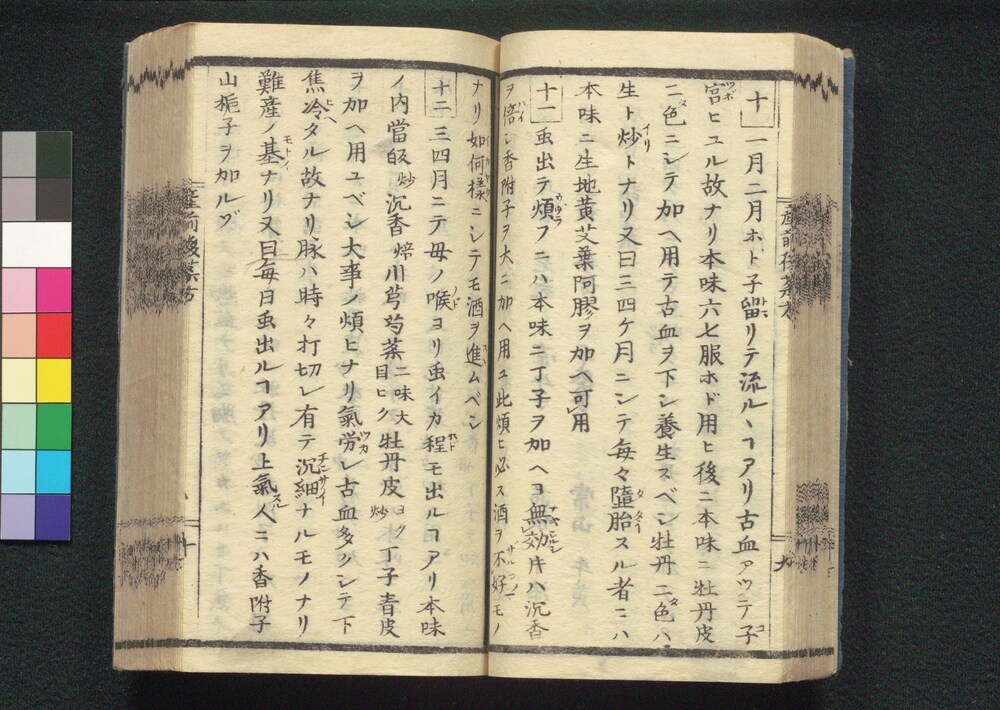 十 一月二月ホド子留リテ流ルヽヿアリ古血アツテ子
宮ヒユル故ナリ本味六七服ホド用ヒ後ニ本味ニ牡丹皮
二色ニシテ加ヘ用テ古血ヲ下シ養生スベシ牡丹二色ハ
生ト炒トナリ又曰三四ケ月ニシテ毎々墮胎スル者ニハ
本味ニ生地黄艾葉阿膠ヲ加ヘ可用
十一 虫出テ煩フニハ本味ニ丁子ヲ加ヘヨ無効片ハ沉香
ヲ倍シ香附子ヲ大ニ加ヘ用ユ此煩ヒ必ス酒ヲ不好モノ
ナリ如何様ニシテモ酒ヲ進ムベシ
十二 三四月ニテ母ノ喉ヨリ虫イカ程モ出ルヿアリ本味
ノ内當皈炒沉香焙川芎芍薬二味大目ヒク牡丹皮ヨク炒丁子青皮
ヲ加ヘ用ユベシ大事ノ煩ヒナリ氣労レ古血多クシテ下
焦冷タル故ナリ脉ハ時々打切レ有テ沉細ナルモノナリ
難産ノ基ナリ又曰毎日虫出ルヿアリ上氣人ニハ香附子
山梔子ヲ加ルヿ
産前後薬方
十